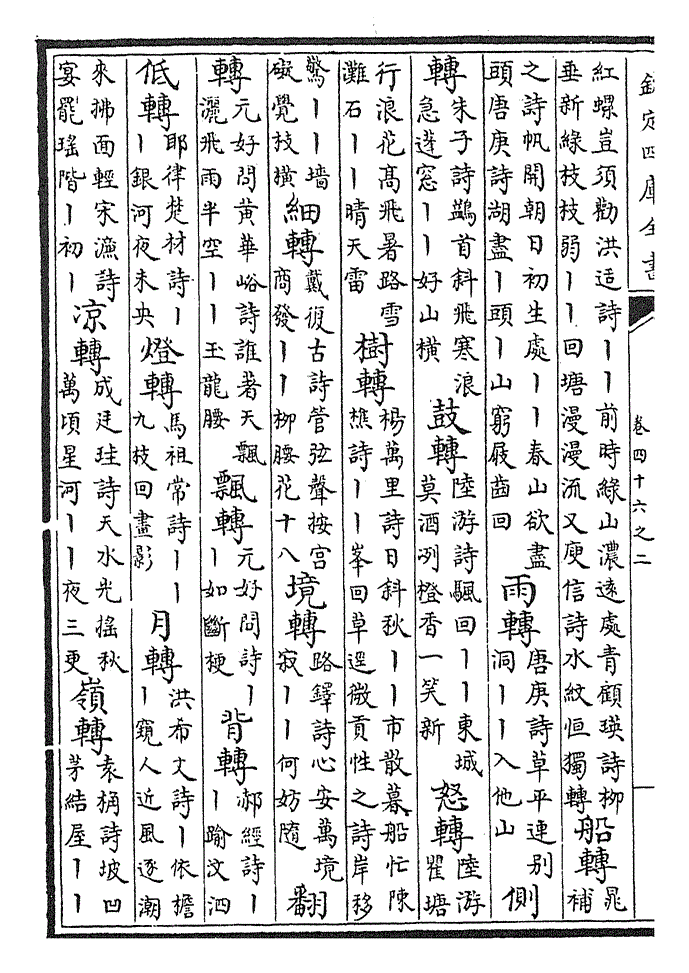 欽定四庫全書
卷四十六之二
紅螺豈須勸洪适詩丨丨前時綠山濃遠處青顧瑛詩柳
垂新綠枝枝弱丨丨回塘漫漫流又庾信詩水紋恒獨轉
船轉
晁
補
之詩帆開朝日初生處丨丨春山欲盡
頭唐庚詩湖盡丨頭丨山窮屐齒回
雨轉
唐庚詩草平連別
洞丨丨入他山
側
轉
朱子詩鷁首斜飛寒浪
急蓬窓丨丨好山橫
鼓轉
陸游詩颿回丨丨東城
莫酒冽橙香一笑新
怒轉
陸游
瞿塘
行浪花高飛暑路雪
灘石丨丨晴天雷
樹轉
楊萬里詩日斜秋丨丨市散暮船忙陳
樵詩丨丨峯回草逕微貢性之詩岸移
驚丨丨墻
礙覺技橫
細轉
戴復古詩管弦聲按宮
商發丨丨柳腰花十八
境轉
路鐸詩心安萬境
寂丨丨何妨隨
翻
轉
元好問黃華峪詩誰著天瓢
灑飛雨半空丨丨玉龍腰
飄轉
元好問詩丨
丨如斷梗
背轉
郝經詩丨
丨踰汶泗
低轉
耶律楚材詩丨
丨銀河夜未央
燈轉
馬祖常詩丨丨
九枝回畫影
月轉
洪希文詩丨依檐
丨窺人近風逐潮
來拂面輕宋濂詩
宴罷瑤階丨初丨
凉轉
成廷珪詩天水光搖秋
萬頃星河丨丨夜三更
嶺轉
袁桷詩坡凹
茅結屋丨丨